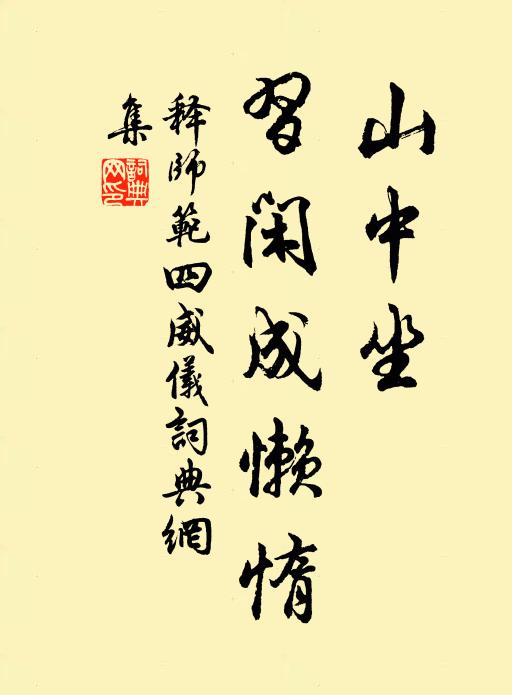 山中坐
習閑成懶惰
释師範四威儀詞典網
集
詞典
网印